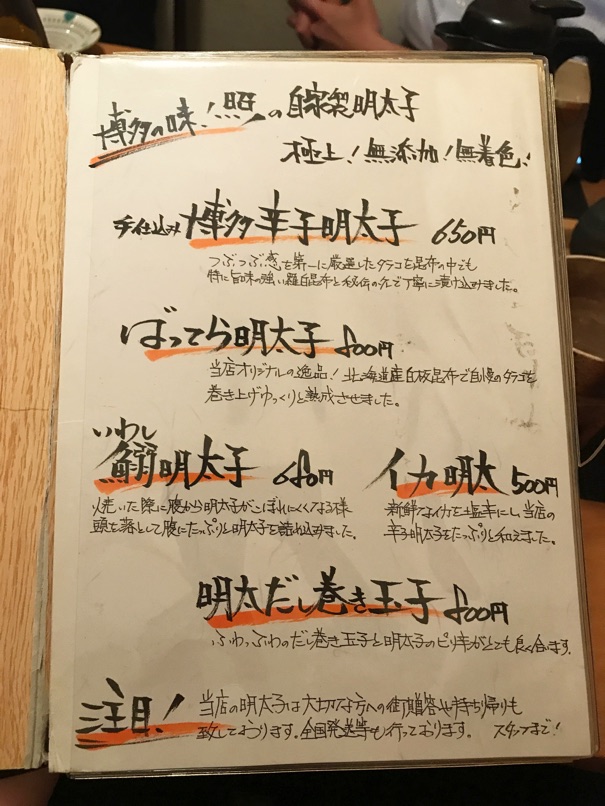 博多の味！照の自家製明太子
極上！無添加！無着色！
手仕込み 博多辛子明太子 650円
つぶつぶ感を第一に厳選したタラコを昆布の中でも
特に旨味の強い羅臼昆布と秘伝のタレで丁寧に漬け込みました。
ばってら明太子 800円
当店オリジナルの逸品！北海道産白板昆布で自慢のタラコを
巻き上げゆっくりと熟成させました。
いわし
鰯明太子 680円
焼いた際に腹から明太子がこぼれにくくなる様
頭を落として腹にたっぷりと明太子を詰め込みました。
イカ明太 500円
新鮮なイカを塩辛にし、当店の
辛子明太子をたっぷりと和えました。
明太だし巻き玉子 800円
ふわっふわのだし巻き玉子と明太子のピリ辛がとても良く合います。
注目！
当店の明太子は大切な方への御贈答や持ち帰りも
致しております。全国発送等も行っております。 スタッフまで！